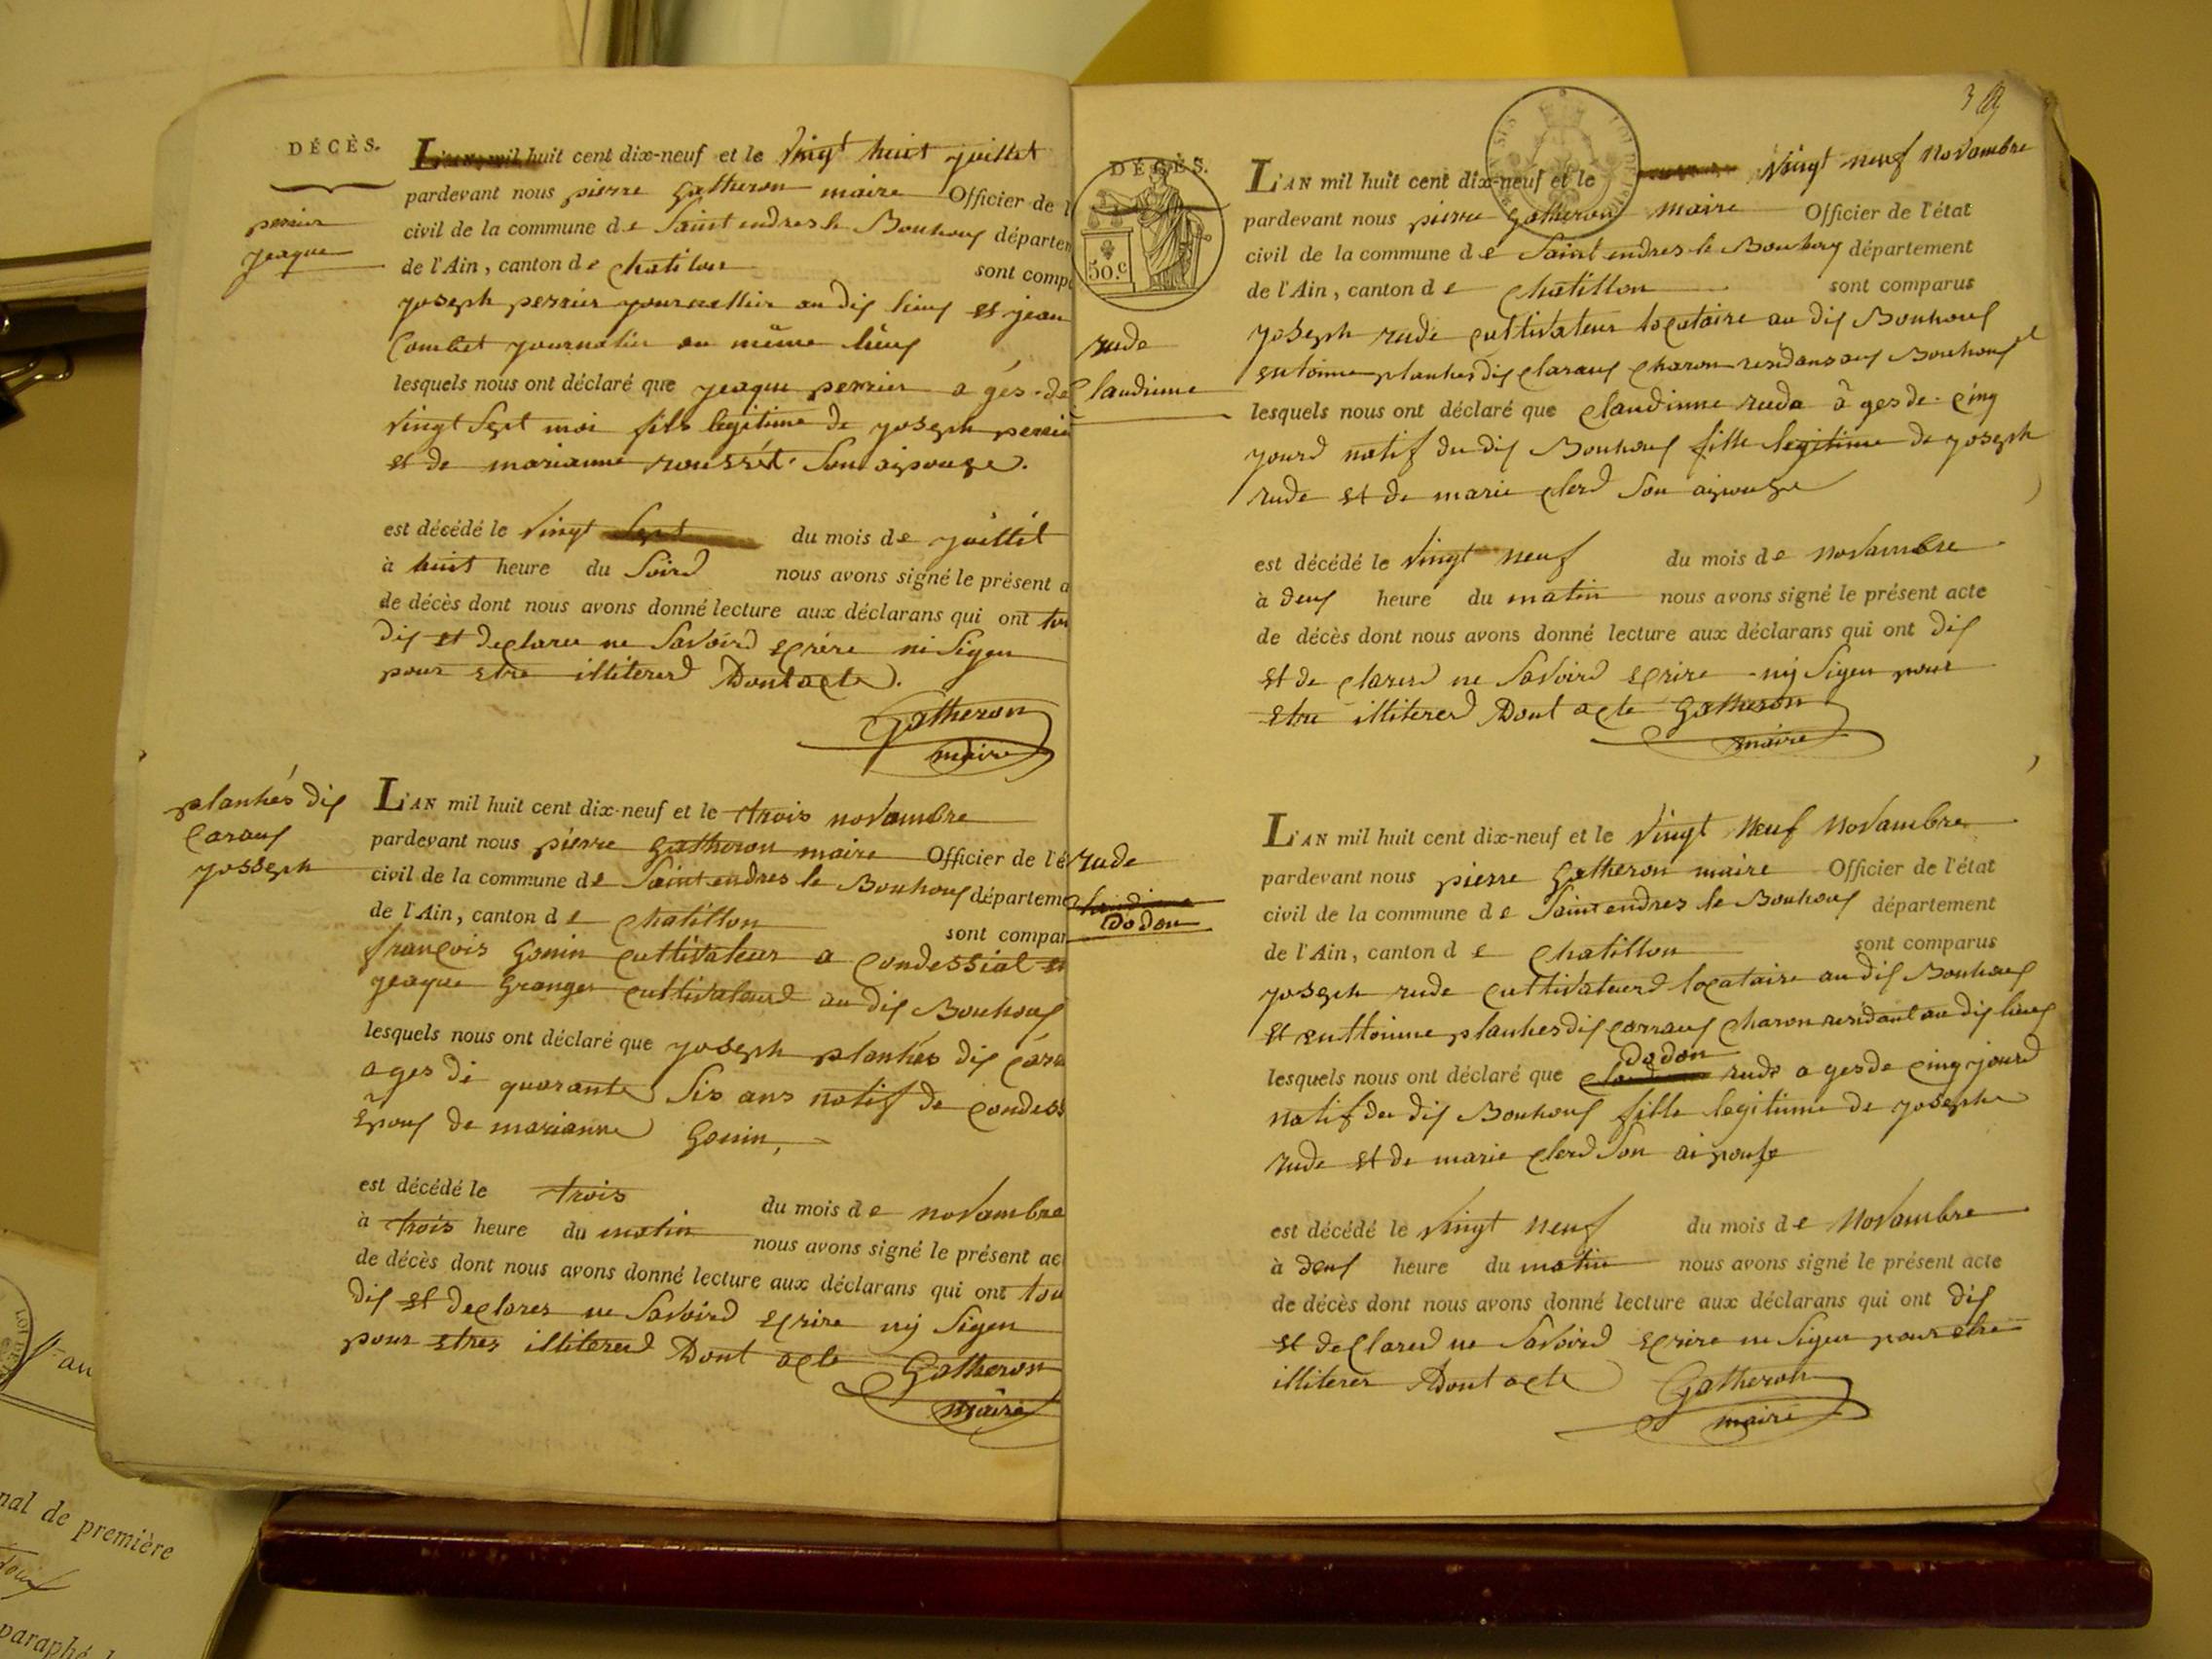 DÉCÈS.
perrier
jeaque
L'AN mil huit cent dix-neuf et le vingt huit juillet
pardevant nous pierre Gatheron maire Officier de l
civil de la commune de Saint endres le Bouhouf départem
de l'Ain, canton de Chatilon sont comp
joseph perrier journallier au dis lieuf et jean
Combet journalier au même lieuf
lesquels nous ont déclaré que jeaque perrier a gés de
vingt sept moi fils legitime de joseph perrier
et de marianne roussét son aipouse.
est décédé le vingt sept du mois de juillet
à huit heure du soird nous avons signé le présent a
de décès dont nous avons donné lecture aux déclarans qui ont tou
dis et declarer ne savoird ecrire ni signer
pour etre illitererd Dont acte.
Gatheron
maire
plankés dis
Carauf
josseph
L'AN mil huit cent dix-neuf et le trois novambre
pardevant nous pierre Gatheron maire Officier de l'é
civil de la commune de Saint endres le Bouhouf départeme
de l'Ain, canton de Chatillon sont compar
françois Gonin cultivateur a Condessial et
jeaque Granger cultivateurd au dis Bouhouf
lesquels nous ont déclaré que joseph plankés dis Cara
ages de quarante six ans natif de Condess
épouf de marianne Gonin,
est décédé le trois du mois de novambre
à trois heure du matin nous avons signé le présent ac
de décès dont nous avons donné lecture aux déclarans qui ont tou
dis et declarer ne savoird ecrire nij signer
pour etres illitererd Dont acte Gatheron
maire
39
DÉCÈS.
50.c
rude
Claudinne
L'AN mil huit cent dix-neuf et le vingt neuf novambre
pardevant nous pierre Gatheron maire Officier de l'état
civil de la commune de Saint endres le Bouhouf département
de l'Ain, canton de Chatillon sont comparus
joseph rude cultivateur locataire au dis Bouhouf et
entoinne plankes dis Carauf charon residans auf Bouhouf
lesquels nous ont déclaré que Claudinne rude à ges de cinq
jourd natif du dis Bouhouf fille legitime de joseph
rude et de marie clerd son aipouse
est décédé le vingt neuf du mois de novambre
à deuf heure du matin nous avons signé le présent acte
de décès dont nous avons donné lecture aux déclarans qui ont dis
et declarerd ne savoird ecrire nij signer pour
etre illitererd Dont acte Gatheron
maire
rude
Claudinne
Dodon
L'AN mil huit cent dix-neuf et le vingt neuf novambre
pardevant nous pierre Gatheron maire Officier de l'état
civil de la commune de Saint endres le Bouhouf département
de l'Ain, canton de Chatillon sont comparus
joseph rude cultivateurd locataire au dis Bouhouf
et enttoinne plankes dis Carrauf charon residant au dis lieuf
Dodon
lesquels nous ont déclaré que Claudinne rude a ges de cinq jourd
natif du dis Bouhouf fille legitime de josephe
rude et de marie clerd son aipouse
est décédé le vingt neuf du mois de novambre
à deuf heure du matin nous avons signé le présent acte
de décès dont nous avons donné lecture aux déclarans qui ont dis
et declarerd ne savoird ecrire ne signer pour etre
illiterer Dont acte Gatheron
maire
au
nal de première
paraphé